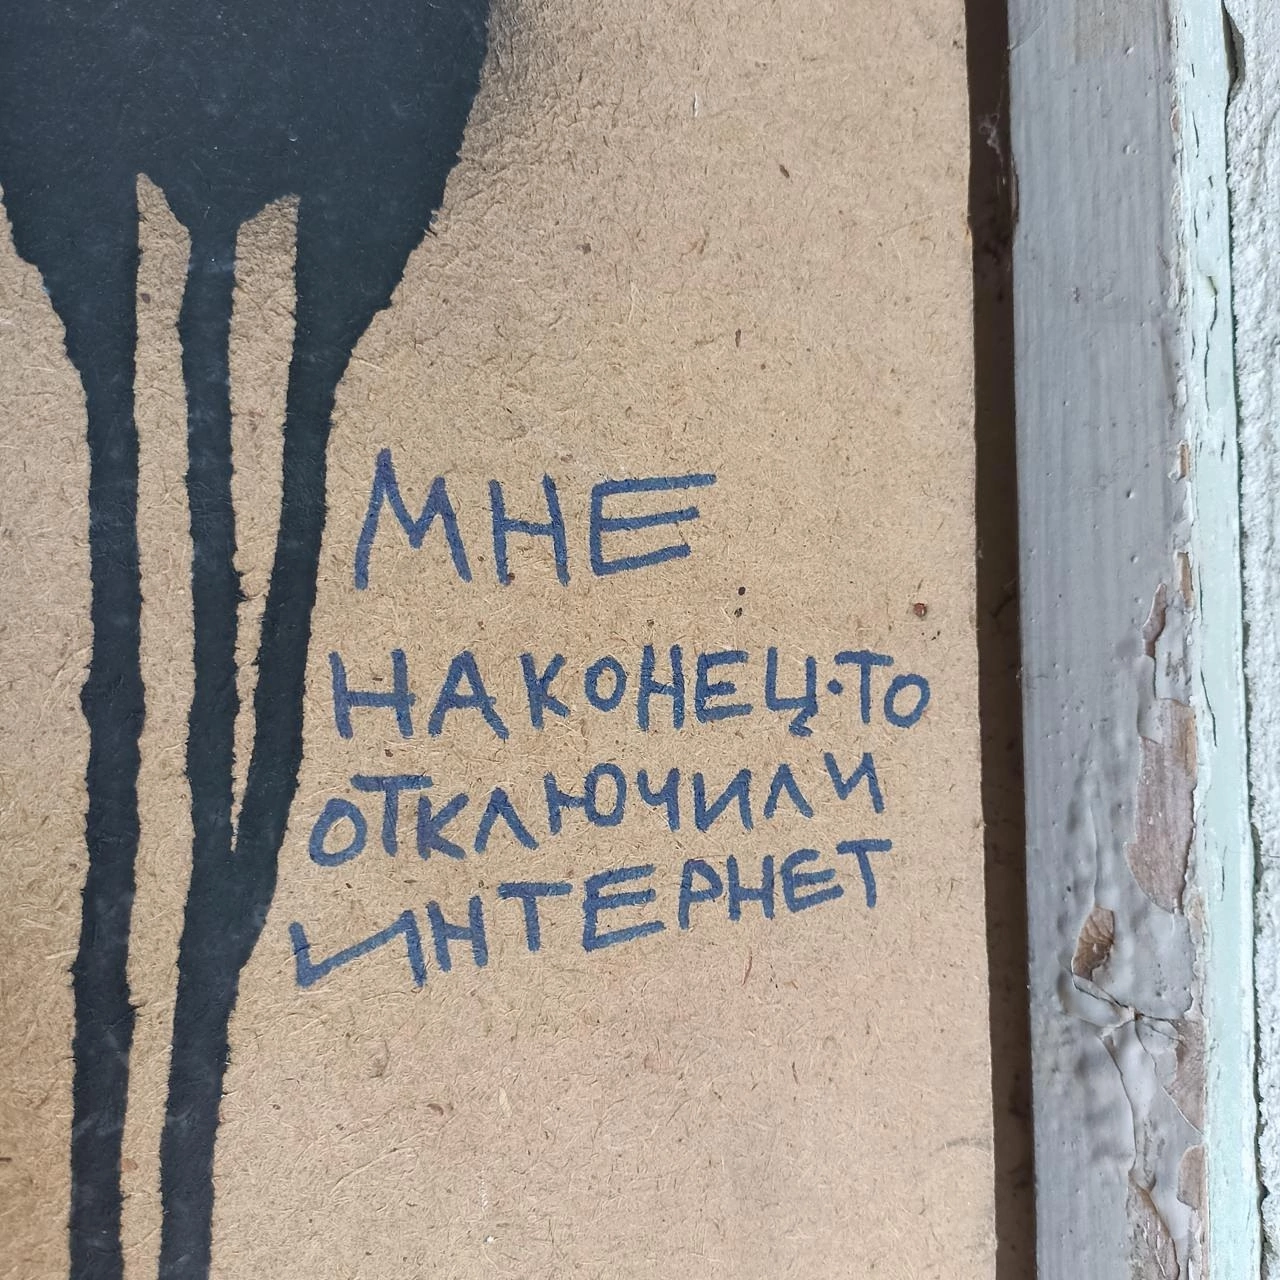 МНЕ
НАКОНЕЦ-ТО
ОТКЛЮЧИЛИ
ИНТЕРНЕТ